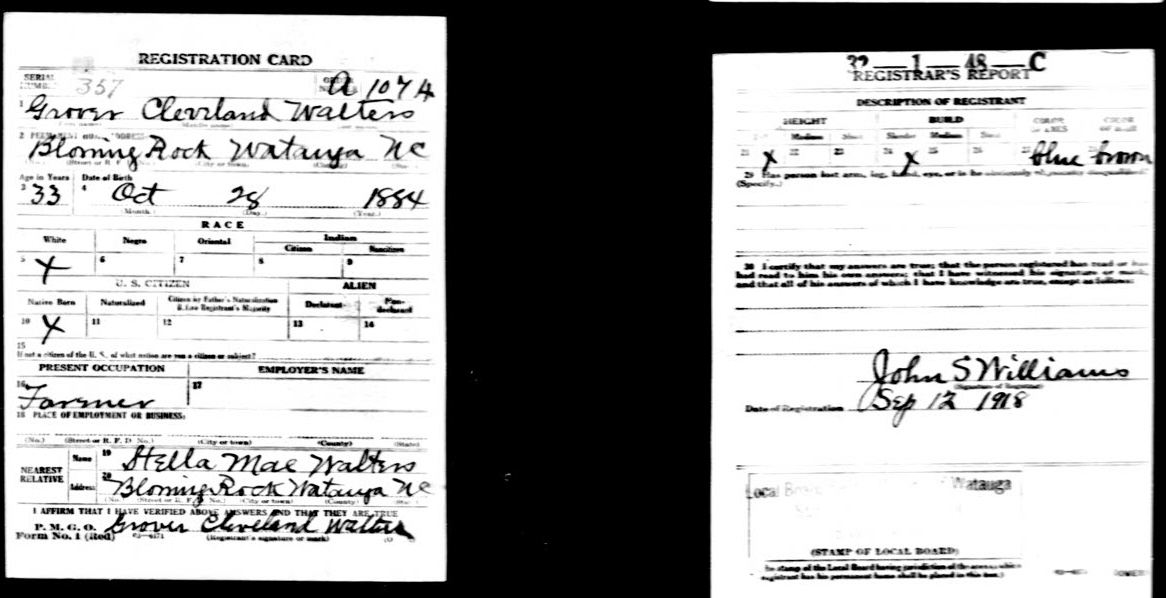 REGISTRATION CARD
SERIAL NUMBER 357 ORDER NUMBER A 1074
1 Grover Cleveland Walters
2 PERMANENT HOME ADDRESS
Bloming Rock Watauga NC
(No.) (Street or R. F. D. No.) (City or town) (County) (State)
Age in Years Date of Birth
3 33 4 Oct 28 1884
(Month.) (Day.) (Year.)
RACE
White Negro Oriental Indian
Citizen Noncitizen
5 X 6 7 8 9
U. S. CITIZEN ALIEN
Native Born Naturalized Citizen by Father's Naturalization Before Registrant's Majority Declarant Non-declarant
10 X 11 12 13 14
15
If not a citizen of the U. S., of what nation are you a citizen or subject?
PRESENT OCCUPATION EMPLOYER'S NAME
16 Farmer 17
18 PLACE OF EMPLOYMENT OR BUSINESS:
(No.) (Street or R. F. D. No.) (City or town) (County) (State)
NEAREST RELATIVE Name 19 Stella Mae Walters
Address 20 Bloming Rock Watauga NC
(No.) (Street or R. F. D. No.) (City or town) (County)
I AFFIRM THAT I HAVE VERIFIED ABOVE ANSWERS AND THAT THEY ARE TRUE
P. M. G. O.
Form No. 1 (Red) Grover Cleveland Walters
(Registrant's signature or mark)
32—1—48—C
REGISTRAR'S REPORT
DESCRIPTION OF REGISTRANT
HEIGHT BUILD COLOR OF EYES COLOR OF HAIR
Medium Short Slender Medium Stout
21 X 22 23 24 X 25 26 27 blue brown
29 Has person lost arm, leg, hand, eye, or is he obviously physically disqualified?
(Specify.)
30 I certify that my answers are true; that the person registered has read or has
had read to him his own answers; that I have witnessed his signature or mark,
and that all of his answers of which I have knowledge are true, except as follows:
John S Williams
(Signature of Registrar)
Date of Registration Sep 12 1918
Local Watauga
(STAMP OF LOCAL BOARD)
stamp of the Local Board having jurisdiction of the area in which
registrant has his permanent home shall be placed in this box.)